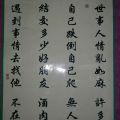 世事人情亂如麻許多
自己跌倒自己爬無人
結交多少好朋友酒肉
遇到事情去找他不在